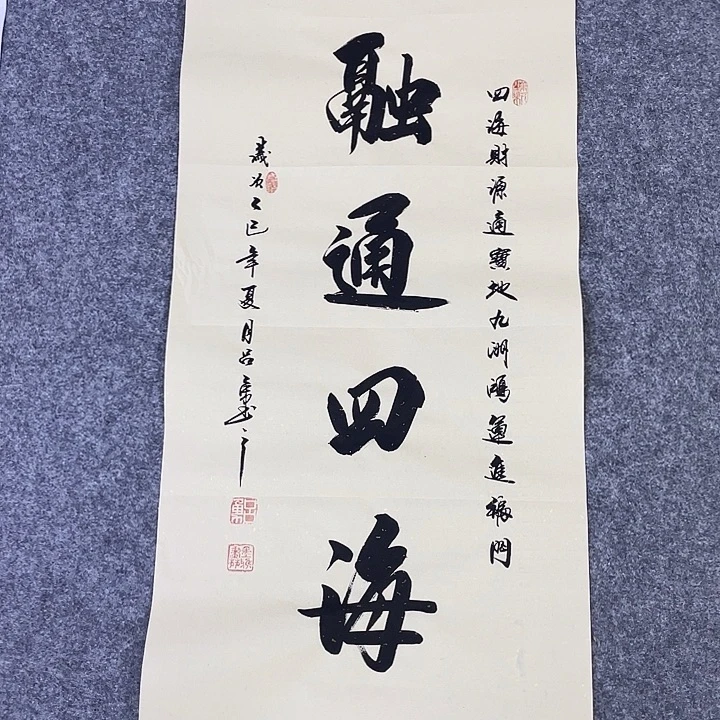 四海財源通寶地九洲鴻運進福門
融通四海
歲次乙巳年夏月呂